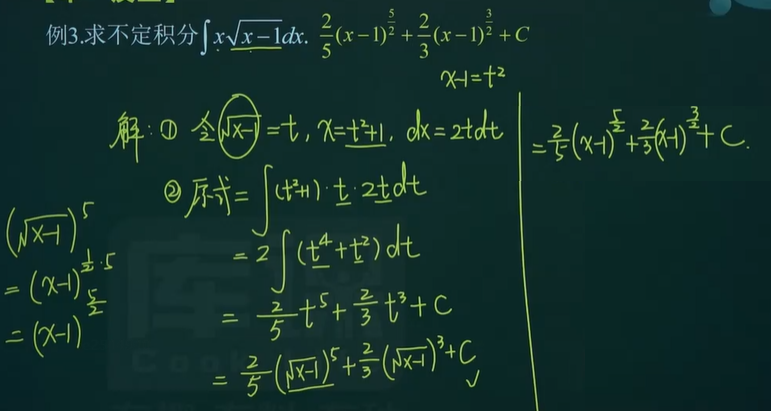 例3.求不定积分∫x√(x−1)dx. 2/5(x−1)^(5/2)+2/3(x−1)^(3/2)+C
x−1=t²
解:① 令√(x−1)=t, x=t²+1, dx=2tdt
② 原式=∫(t²+1)·t·2tdt
=2∫(t⁴+t²)dt
=2/5t⁵+2/3t³+C
=2/5(√(x−1))⁵+2/3(√(x−1))³+C
(√(x−1))⁵
=(x−1)^(1/2·5)
=(x−1)^(5/2)
=2/5(x−1)^(5/2)+2/3(x−1)^(3/2)+C.
库课